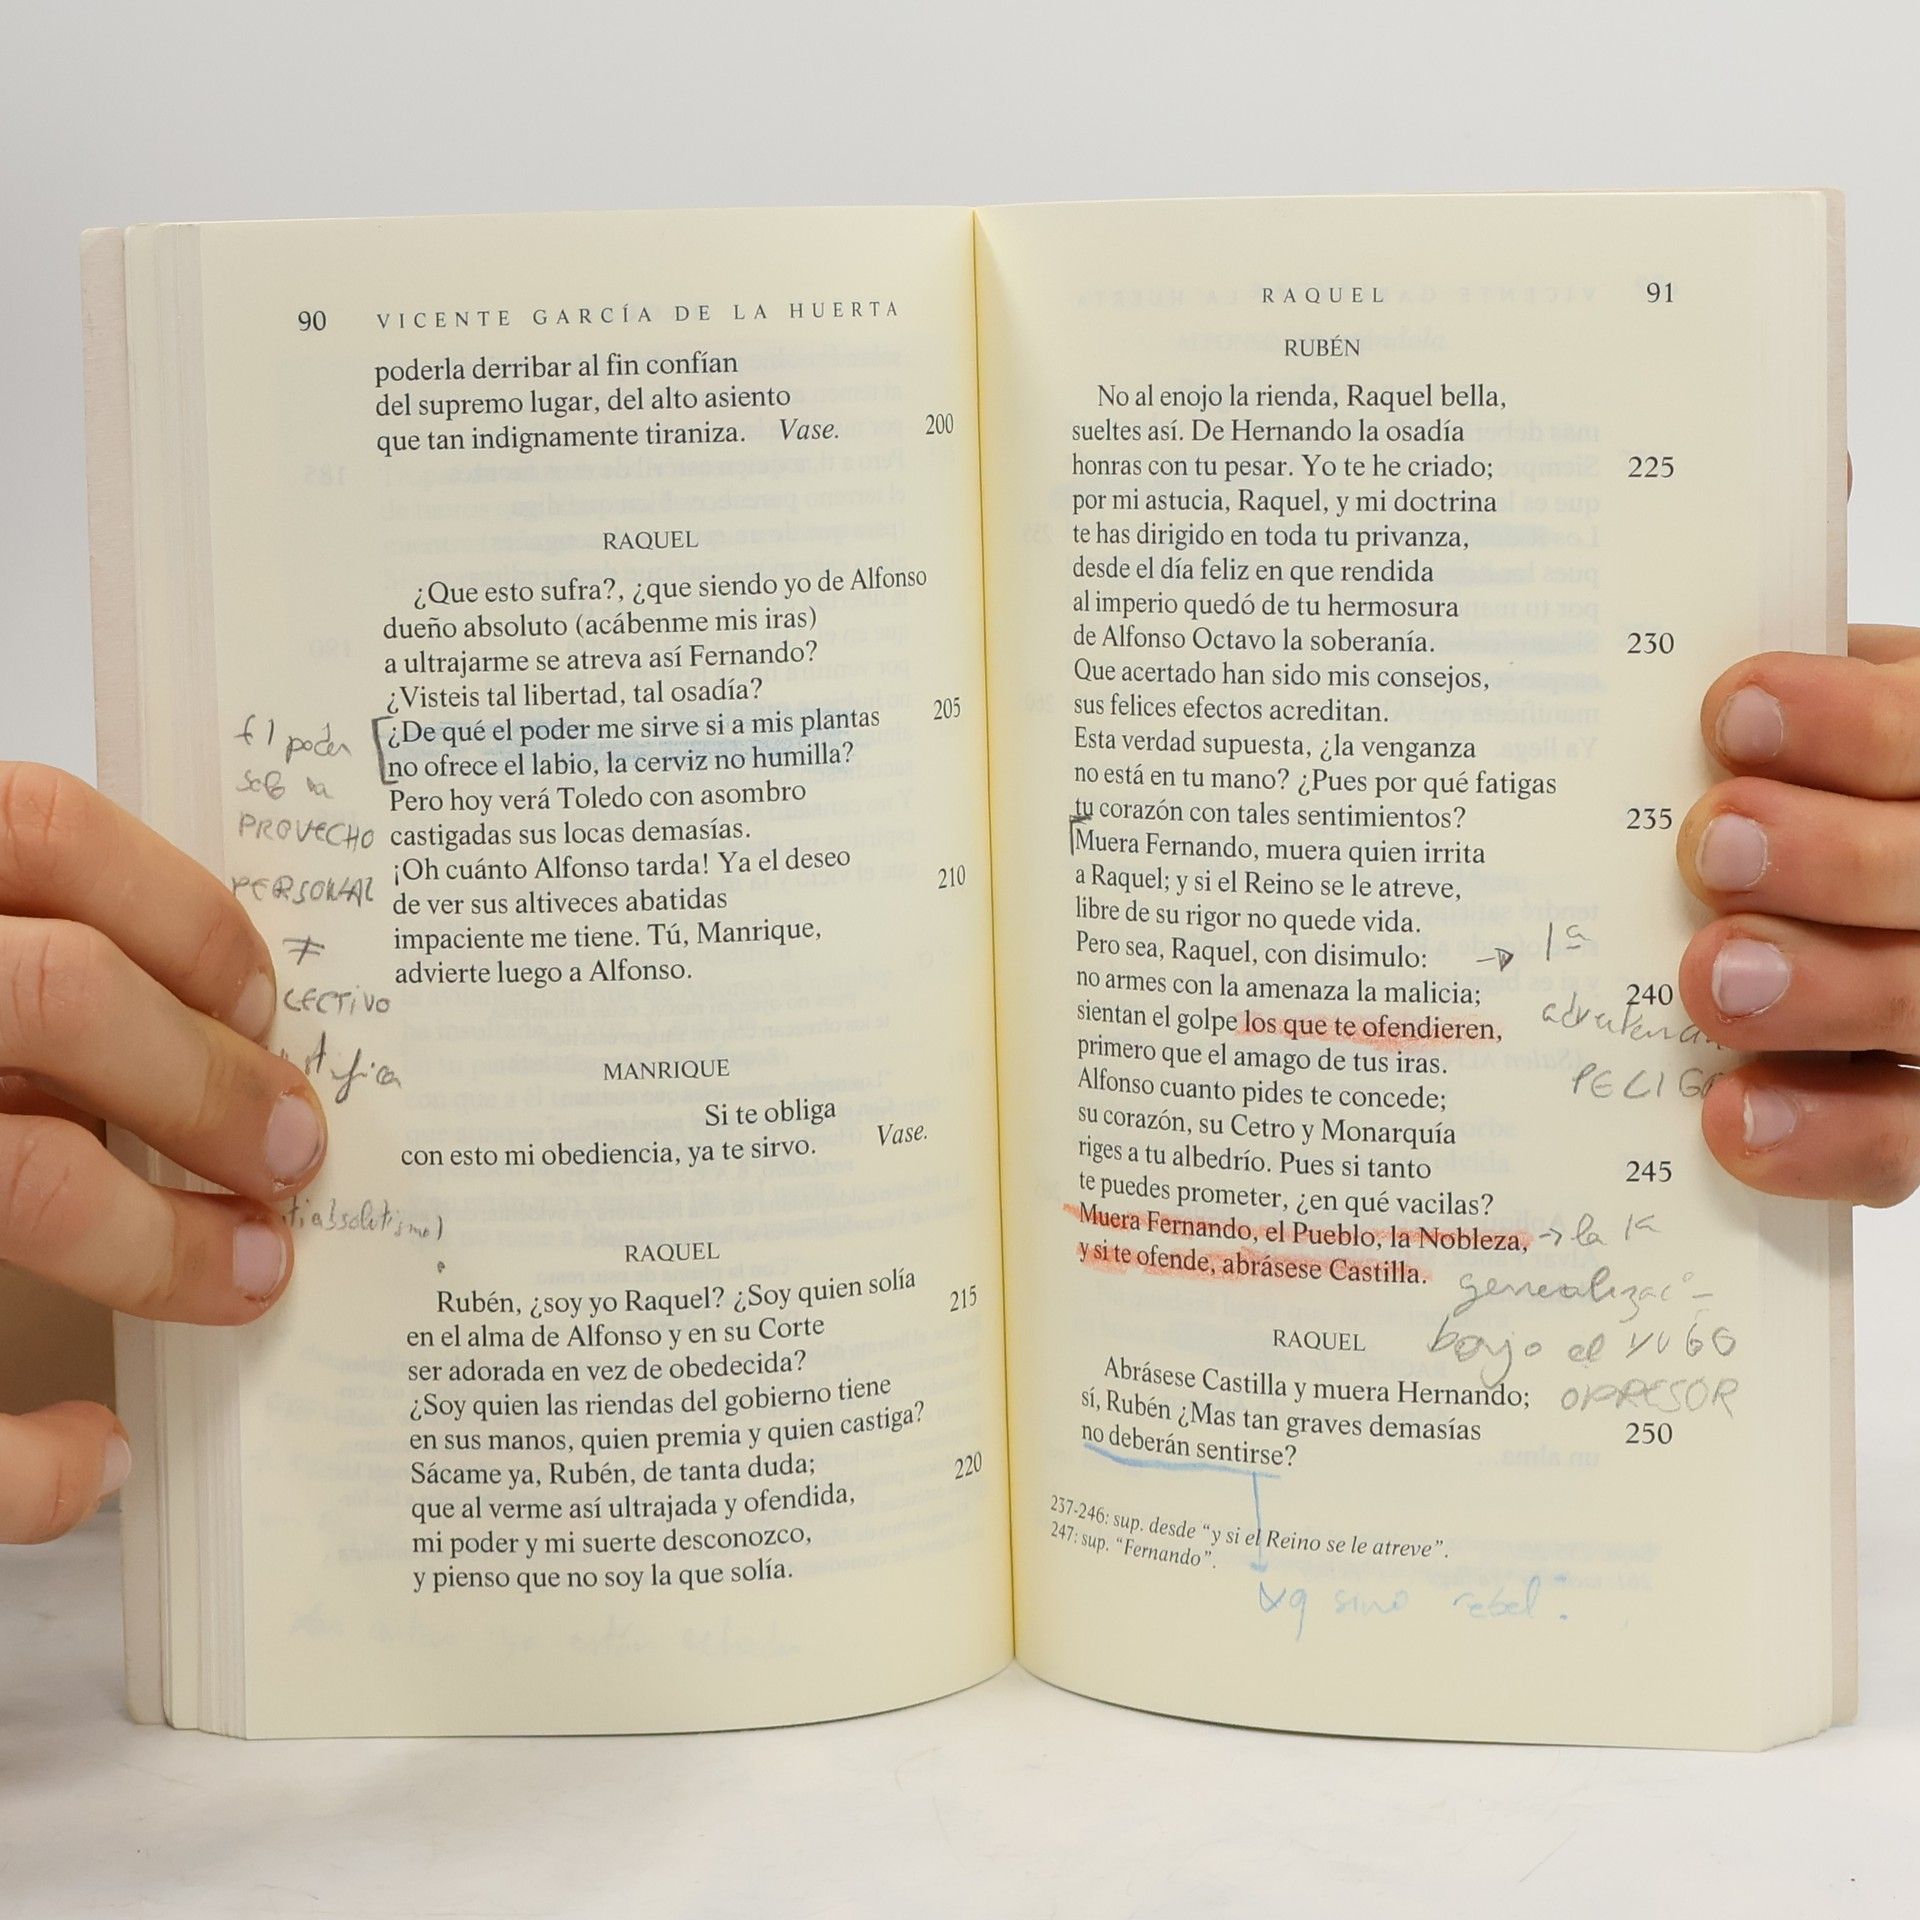 90 VICENTE GARCÍA DE LA HUERTA
poderla derribar al fin confían
del supremo lugar, del alto asiento
que tan indignamente tiraniza. Vase. 200
RAQUEL
¿Que esto sufra?, ¿que siendo yo de Alfonso
dueño absoluto (acábenme mis iras)
a ultrajarme se atreva así Fernando?
¿Visteis tal libertad, tal osadía?
¿De qué el poder me sirve si a mis plantas 205
no ofrece el labio, la cerviz no humilla?
Pero hoy verá Toledo con asombro
castigadas sus locas demasías.
¡Oh cuánto Alfonso tarda! Ya el deseo
de ver sus altiveces abatidas 210
impaciente me tiene. Tú, Manrique,
advierte luego a Alfonso.
MANRIQUE
Si te obliga
con esto mi obediencia, ya te sirvo. Vase.
RAQUEL
Rubén, ¿soy yo Raquel? ¿Soy quien solía
en el alma de Alfonso y en su Corte 215
ser adorada en vez de obedecida?
¿Soy quien las riendas del gobierno tiene
en sus manos, quien premia y quien castiga?
Sácame ya, Rubén, de tanta duda;
que al verme así ultrajada y ofendida, 220
mi poder y mi suerte desconozco,
y pienso que no soy la que solía.
El poder
PROVECHO
PERSONAL
≠
RAQUEL 91
RUBÉN
No al enojo la rienda, Raquel bella,
sueltes así. De Hernando la osadía
honras con tu pesar. Yo te he criado; 225
por mi astucia, Raquel, y mi doctrina
te has dirigido en toda tu privanza,
desde el día feliz en que rendida
al imperio quedó de tu hermosura
de Alfonso Octavo la soberanía. 230
Que acertado han sido mis consejos,
sus felices efectos acreditan.
Esta verdad supuesta, ¿la venganza
no está en tu mano? ¿Pues por qué fatigas
tu corazón con tales sentimientos? 235
Muera Fernando, muera quien irrita
a Raquel; y si el Reino se le atreve,
libre de su rigor no quede vida.
Pero sea, Raquel, con disimulo: → 1ª
no armes con la amenaza la malicia; 240
sientan el golpe los que te ofendieren,
primero que el amago de tus iras.
Alfonso cuanto pides te concede;
su corazón, su Cetro y Monarquía
riges a tu albedrío. Pues si tanto 245
te puedes prometer, ¿en qué vacilas?
Muera Fernando, el Pueblo, la Nobleza, → la 1ª
y si te ofende, abrásese Castilla.
bajo el yugo
OPRESOR
RAQUEL
Abrásese Castilla y muera Hernando;
sí, Rubén ¿Mas tan graves demasías 250
no deberán sentirse?
237-246: sup. desde “y si el Reino se le atreve”.
247: sup. “Fernando”.
xq sino rebel.